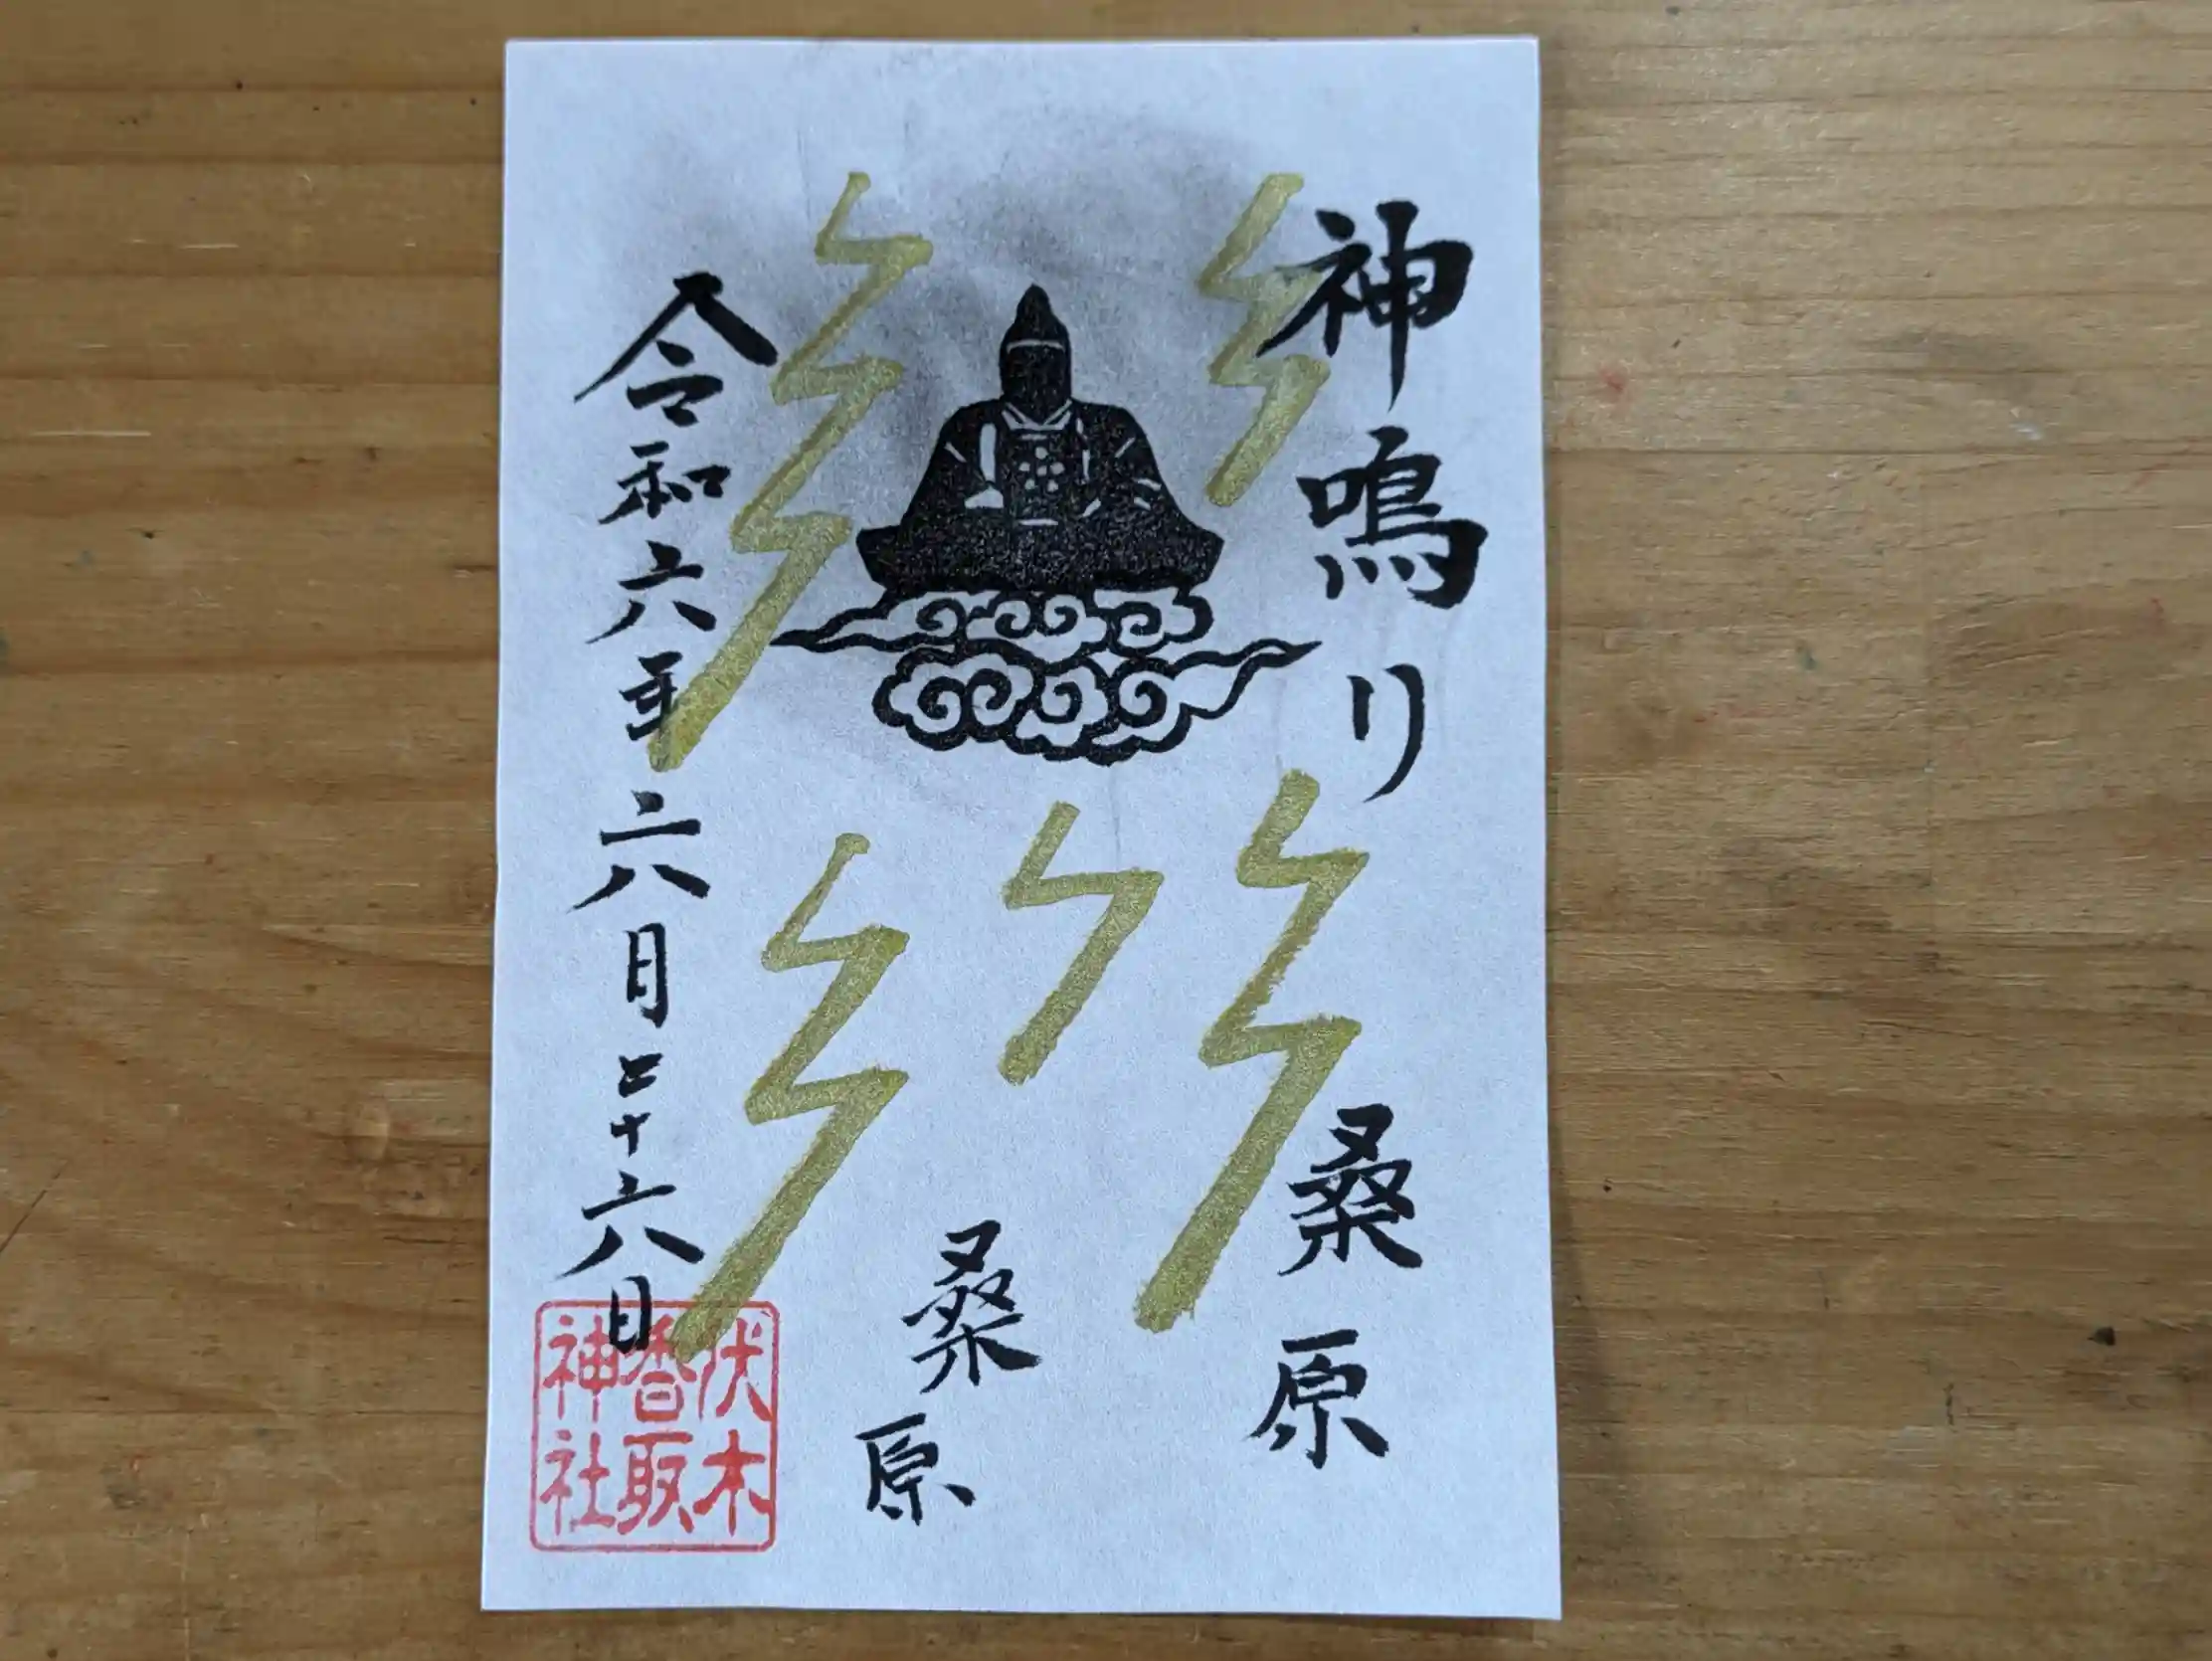 神鳴り
桑原
桑原
令和六年六月二十六日
伏木
香取
神社